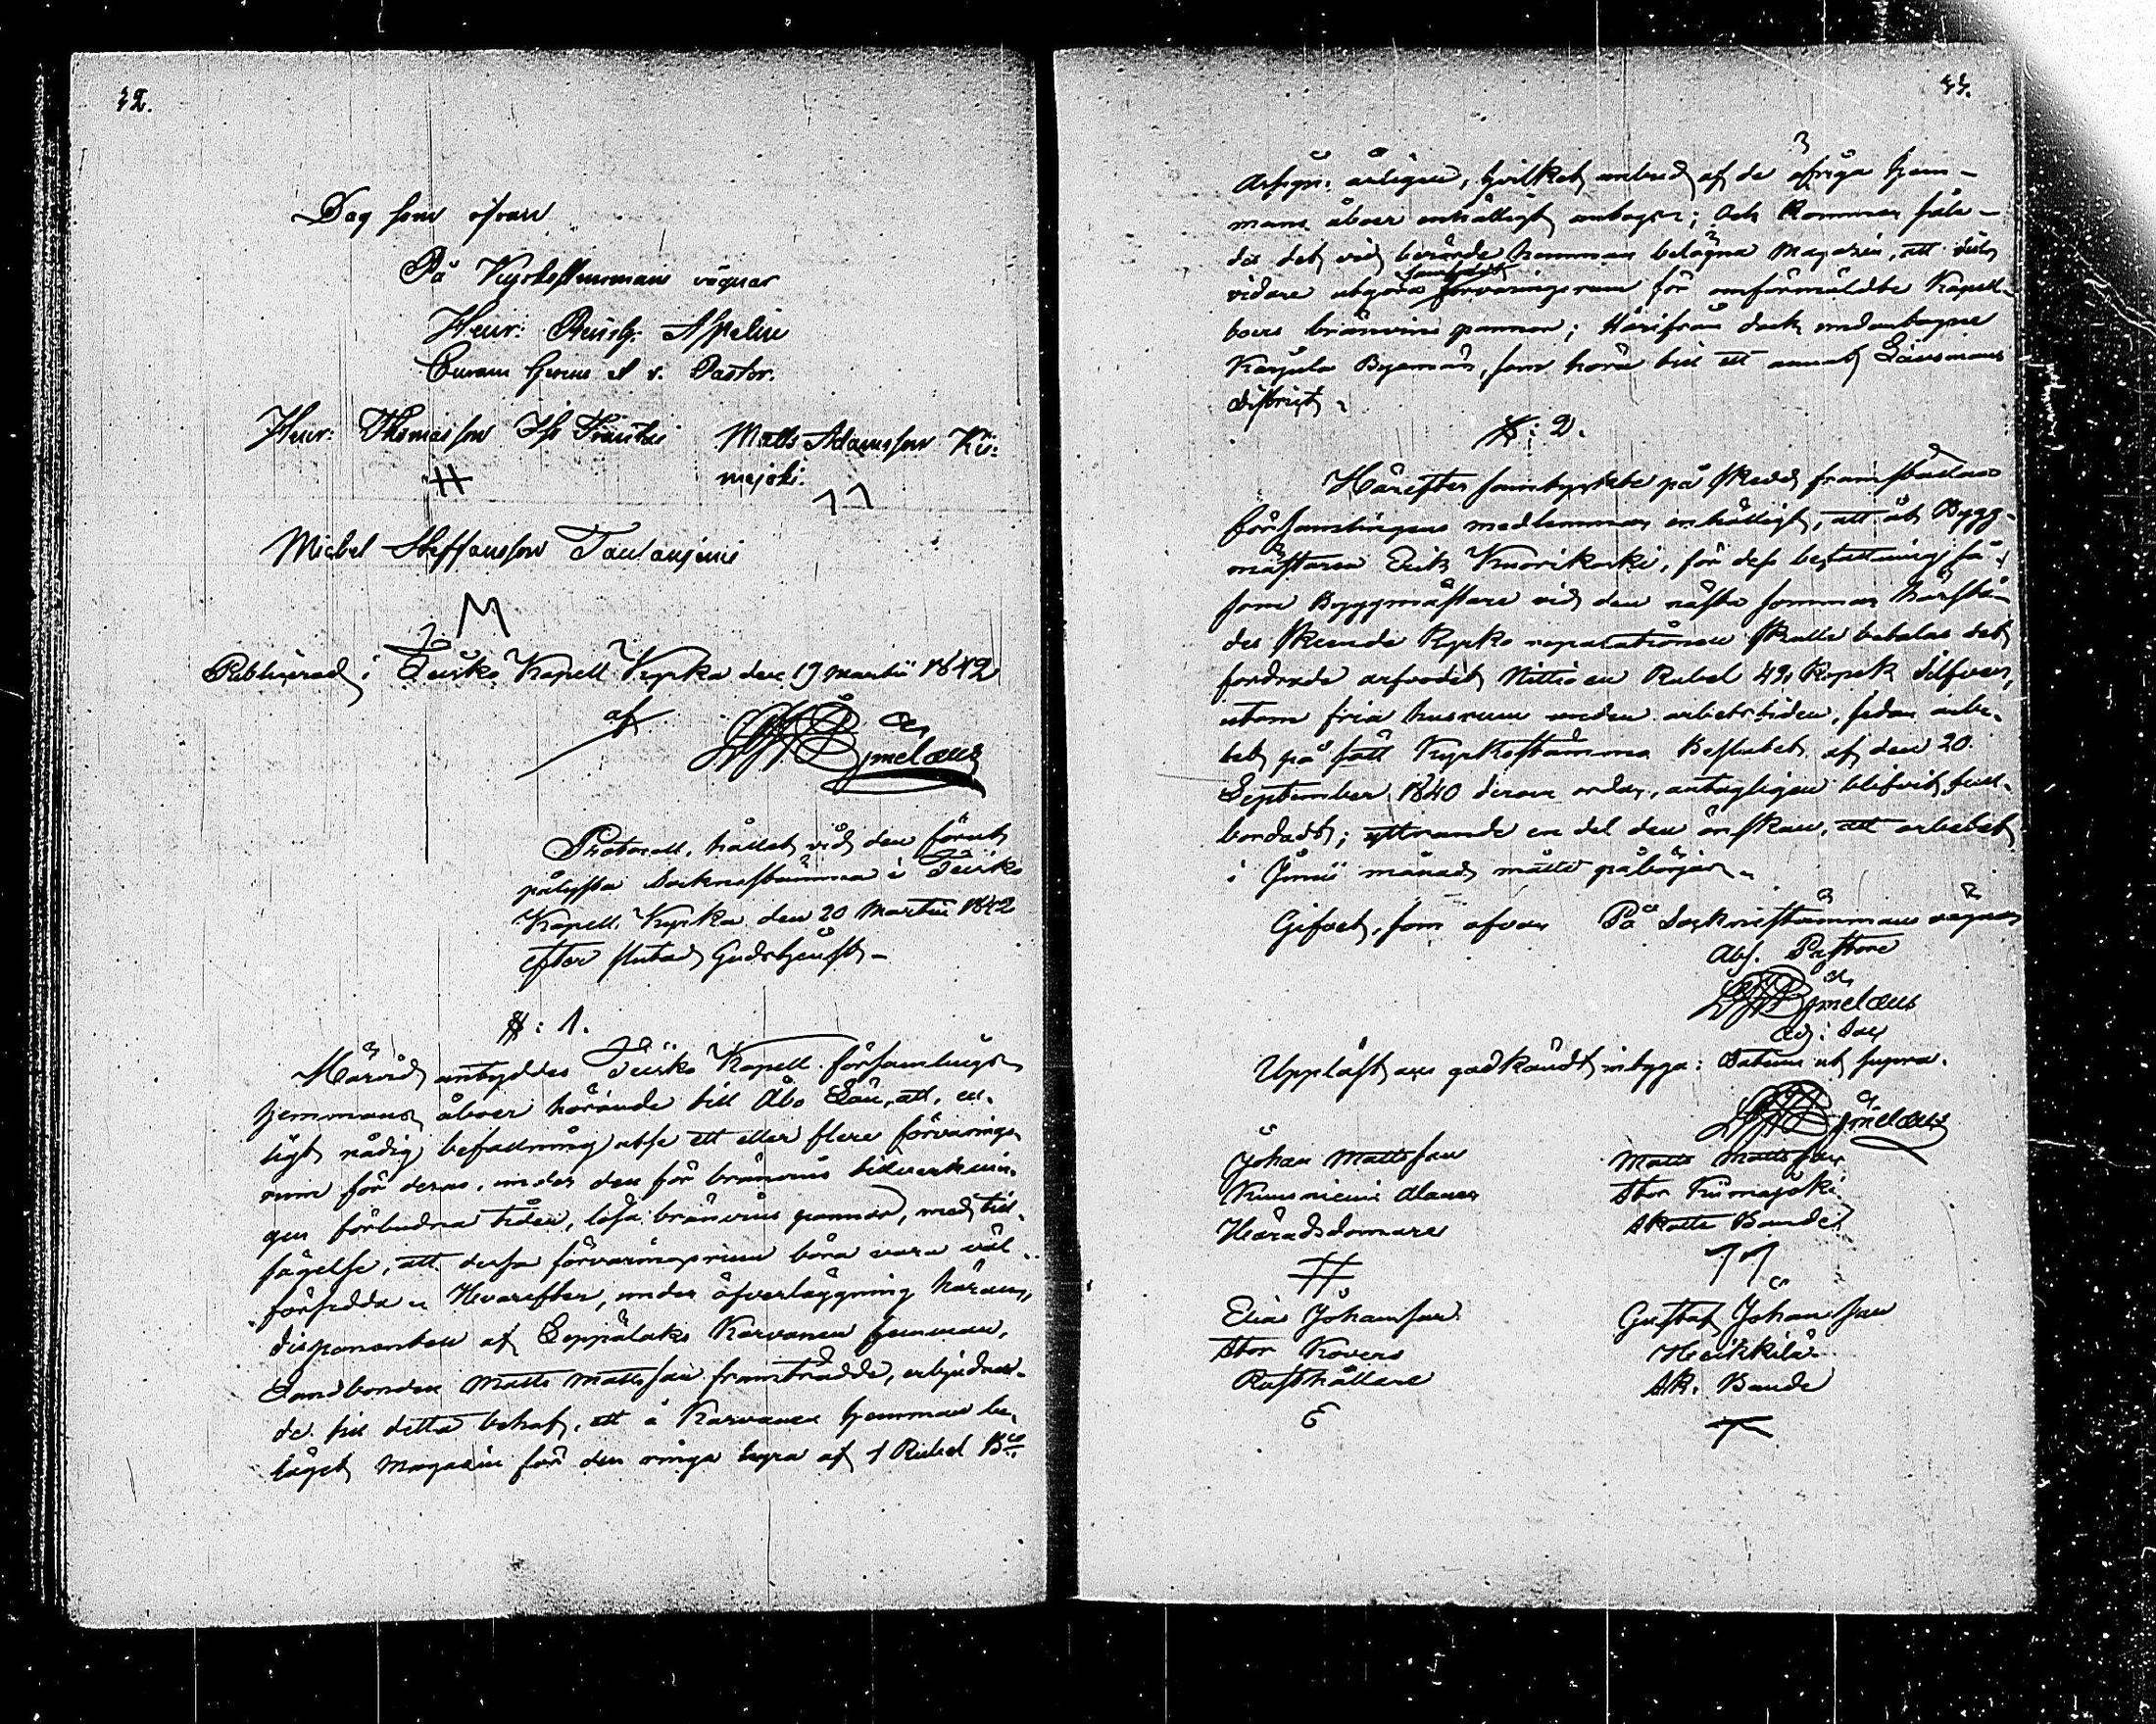 32.
Dag som ofvan
På Kyrkostemmans vägnar
Henr: Reinh: Appelin
Curam gerens et v. Pastor.
Henr: Thomasson Matts Adamsson Kii-
majoki.
Michel Steffansson Taulaniemi
Publicerad i Teisko Kapell Kyrka den 19 Martii 1842
af
Bymelæus
Protocoll, hållet vid den förut
pålysta Socknestämma i Teisko
Kapell Kyrka den 20 Martii 1842
efter slutad Gudstjenst.
§: 1.
Härvid antyddes Teisko Kapell församlings
hemmans åboer hörande till Åbo Län, att, en-
ligt nådig befallning utse ett eller flere förvarings
rum för deras, under den för bränvins tillverknin-
gen förbudna tiden, lösa bränvins pannor, med till-
sägelse, att dessa förvaringsrum böra vara väl
försedda. Hvarefter, under öfverläggning härom,
disponenten af Leppälaks Karvanen hemman,
Landbonden Matts Mattsson framträdde, erbjudan-
de till detta behof, ett å Karvanen hemman be-
läget Magasin för den ringa hyra af 1 Rubel Bco
33.
Assign: årligen, hvilket anbud af de öfriga hem-
mans åboer enhälligt antogs; och kommer såle-
des det vid berörde hemman belägna Magasin, att tills
vidare utgöra samfäldt förvaringsrum för omförmäldte Kapell-
boers bränvins pannor; Härifrån dock undantagne
Karjula Byamän, som höra till ett annat Länsmans
district.
§: 2.
Härefter samtyckte på skedd framställan
församlingens medlemmar enhälligt, att åt Bygg-
mästaren Erik Kuorikoski, för dess befattning så-
som Byggmästare vid den nästa sommar härstä-
des skeende Kyrko reparationen skulle betalas det
fordrade arfvodet Nittio en Rubel 42 Kopek Silfver,
utom fria husrum under arbetstiden, sedan arbe-
tet på sätt Kyrkostämma Beslutet af den 20
September 1840 derom ordar, antagligen blifvit full-
bordadt; yttrande en del den önskan, att arbetet
i Junii månad måtte påbörjas.
Gifvet, som ofvan På Socknestämmans vägnar
Abs. Pastore
Bymelæus
adj: Sac
Uppläst och godkändt intyga: Datum ut supra.
Bymelæus
Johan Mattsson
Kuusniemi Alanen
Häradsdomare
Matts Mattsson
Stor Kiimajoki
Skatte Bonde
Elias Johansson
Stor Kovero
Rusthållare
E
Gustaf Johansson
Heikkilä
Sk. Bonde